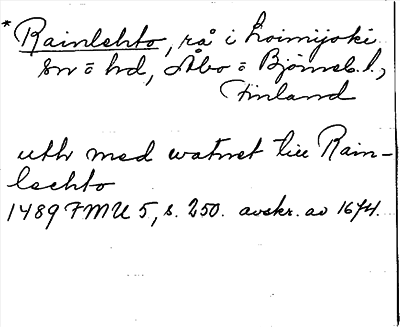 * Rainlehto, rå i Loimijoki
sn o hd, Åbo o Björneb. l.,
Finland
uth med watnet till Rain-
lechto
1489 FMU 5, s. 250. avskr. av 1674.